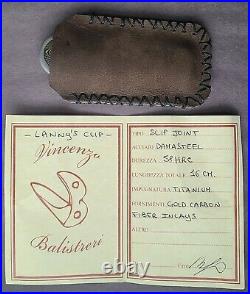 - LANNY'S CLIP -
Vincenzo
Balistreri
TIPO SLIP JOINT
ACCIAIO DAMASTEEL
DUREZZA 58 HRC
LUNGHEZZA TOTALE 16 CM.
IMPUGNATURA TITANIUM
FORNIMENTI GOLD CARBON
FIBER INLAYS
ALTRO